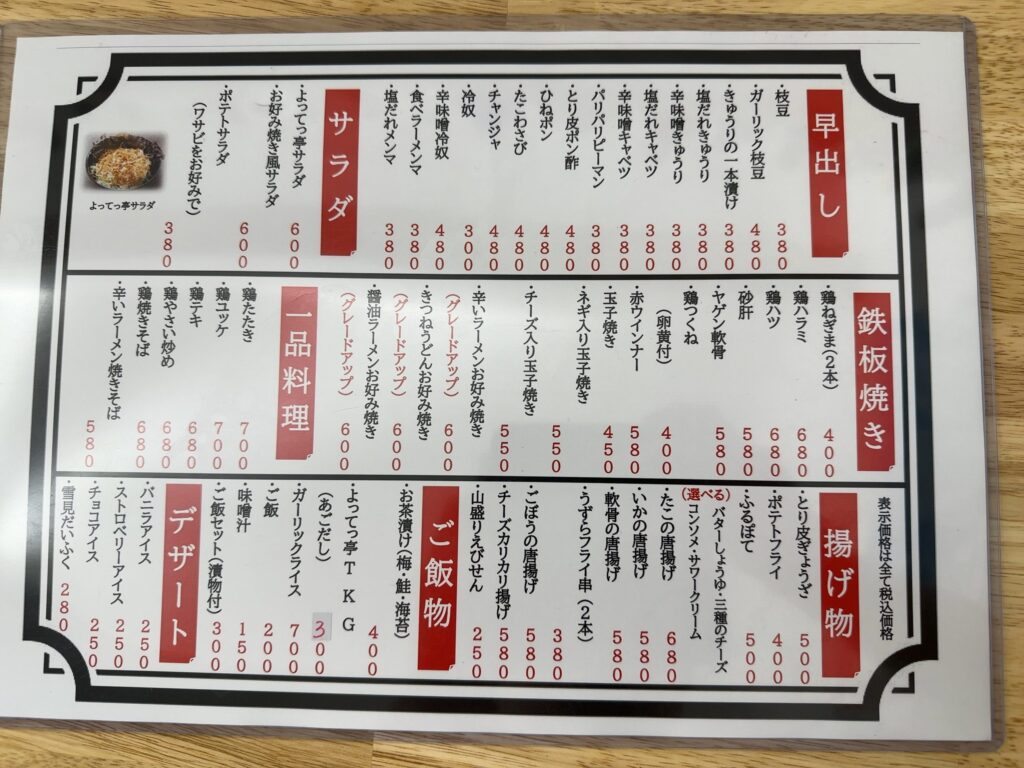 早出し
・枝豆 380
・ガーリック枝豆 480
・きゅうりの一本漬け 380
・塩だれきゅうり 380
・辛味噌きゅうり 380
・塩だれキャベツ 380
・辛味噌キャベツ 380
・パリパリピーマン 380
・とり皮ポン酢 480
・ひねポン 480
・たこわさび 480
・チャンジャ 480
・冷奴 300
・辛味噌冷奴 480
・食べラーメンマ 380
・塩だれメンマ 380
サラダ
・よってっ亭サラダ 600
・お好み焼き風サラダ 600
・ポテトサラダ
(ワサビをお好みで) 380
よってっ亭サラダ
鉄板焼き
・鶏ねぎま(2本) 400
・鶏ハラミ 680
・鶏ハツ 680
・砂肝 580
・ヤゲン軟骨 580
・鶏つくね
(卵黄付) 400
・赤ウインナー 580
・玉子焼き 450
・ネギ入り玉子焼き 550
・チーズ入り玉子焼き 550
・辛いラーメンお好み焼き
(グレードアップ) 600
・きつねうどんお好み焼き
(グレードアップ) 600
・醤油ラーメンお好み焼き
(グレードアップ) 600
一品料理
・鶏たたき 700
・鶏ユッケ 700
・鶏テキ 680
・鶏やさい炒め 680
・鶏焼きそば 680
・辛いラーメン焼きそば 580
表示価格は全て税込価格
揚げ物
・とり皮ぎょうざ 500
・ポテトフライ 400
・ふるぽて 500
(選べる) バターしょうゆ・三種のチーズ
・コンソメ・サワークリーム
・たこの唐揚げ 680
・いかの唐揚げ 580
・軟骨の唐揚げ 580
・うずらフライ串(2本) 380
・ごぼうの唐揚げ 580
・チーズカリカリ揚げ 580
・山盛りえびせん 250
ご飯物
・お茶漬け(梅・鮭・海苔) 400
・よってっ亭TKG
(あごだし) 300
・ガーリックライス 700
・ご飯 200
・味噌汁 150
・ご飯セット(漬物付) 300
デザート
・バニラアイス 250
・ストロベリーアイス 250
・チョコアイス 250
・雪見だいふく 280